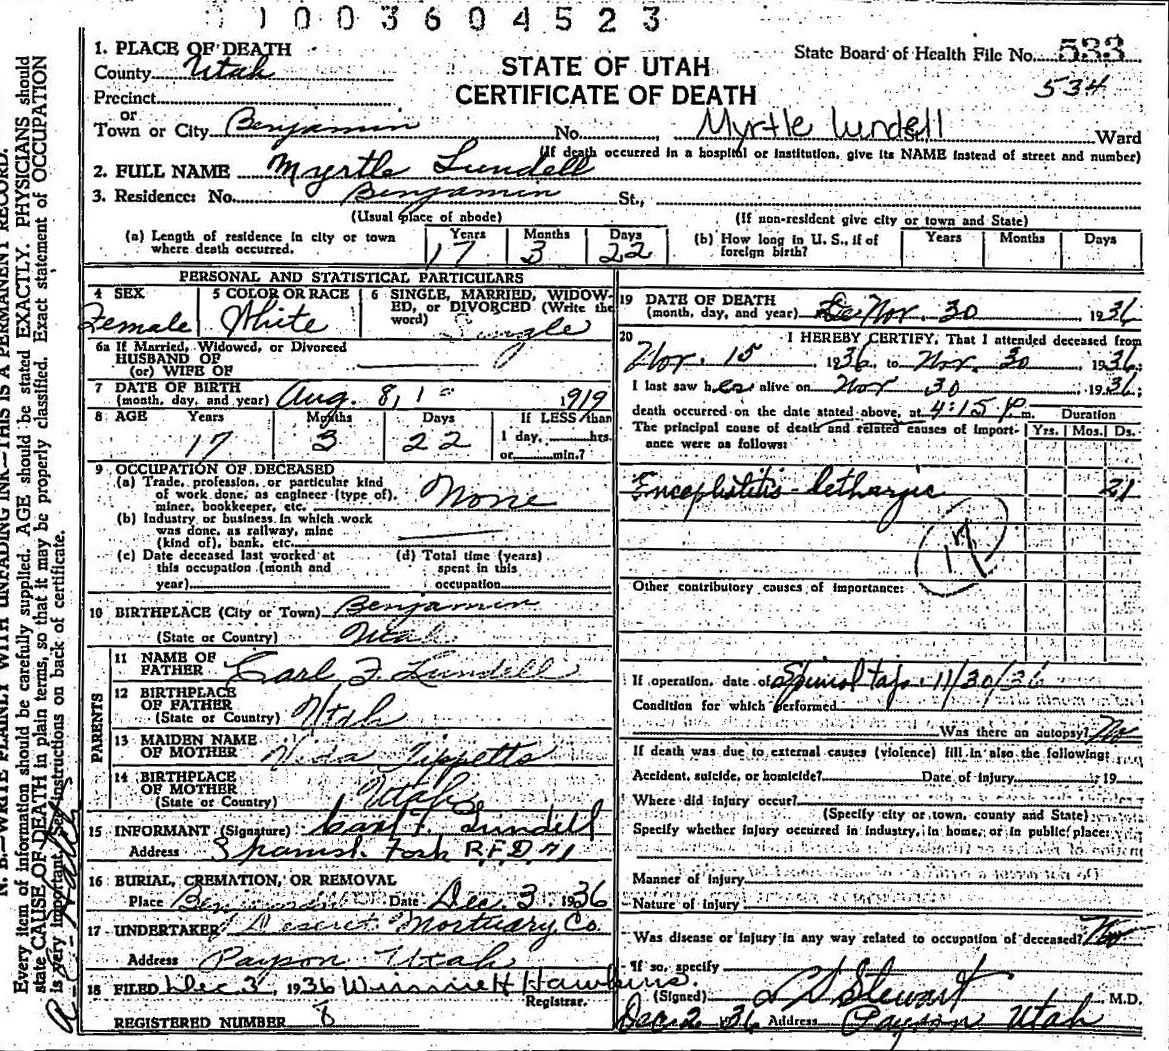 1003604523
1. PLACE OF DEATH
County Utah
Precinct
or
Town or City Benjamin No. Myrtle Lundell Ward
STATE OF UTAH
CERTIFICATE OF DEATH
State Board of Health File No. 533
534
(If death occurred in a hospital or institution, give its NAME instead of street and number)
2. FULL NAME Myrtle Lundell
3. Residence: No. Benjamin St.,
(Usual place of abode) (If non-resident give city or town and State)
(a) Length of residence in city or town where death occurred. Years 17 Months 3 Days 22
(b) How long in U. S., if of foreign birth? Years Months Days
PERSONAL AND STATISTICAL PARTICULARS
4 SEX Female
5 COLOR OR RACE White
6 SINGLE, MARRIED, WIDOWED, OR DIVORCED (Write the word) Single
6a If Married, Widowed, or Divorced
HUSBAND OF
(or) WIFE OF
7 DATE OF BIRTH
(month, day, and year) Aug. 8, 1919
8 AGE Years 17 Months 3 Days 22 If LESS than 1 day, hrs. or min.?
9 OCCUPATION OF DECEASED
(a) Trade, profession, or particular kind of work done, as engineer (type of), miner, bookkeeper, etc. None
(b) Industry or business in which work was done, as railway, mine (kind of), bank, etc.
(c) Date deceased last worked at this occupation (month and year)
(d) Total time (years) spent in this occupation
10 BIRTHPLACE (City or Town) Benjamin
(State or Country) Utah
PARENTS
11 NAME OF FATHER Carl F. Lundell
12 BIRTHPLACE OF FATHER
(State or Country) Utah
13 MAIDEN NAME OF MOTHER Tippetts
14 BIRTHPLACE OF MOTHER
(State or Country) Utah
15 INFORMANT (Signature) Carl F. Lundell
Address Spanish Fork R.F.D. #1
16 BURIAL, CREMATION, OR REMOVAL
Place Benjamin Date Dec. 3 1936
17 UNDERTAKER Deseret Mortuary Co
Address Payson Utah
18 FILED Dec 3, 1936 Winnie H Hawkins.
Registrar.
REGISTERED NUMBER 8
19 DATE OF DEATH
(month, day, and year) Nov. 30 1936
20 I HEREBY CERTIFY, That I attended deceased from
Nov. 15 1936, to Nov. 30 1936;
I last saw her alive on Nov 30 1936;
death occurred on the date stated above, at 4:15 P.m. Duration
The principal cause of death and related causes of importance were as follows: Yrs. Mos. Ds.
Encephlitis - lethargic 21
17
Other contributory causes of importance:
If operation, date of Spinal tap. 11/30/36
Condition for which performed
Was there an autopsy? No
If death was due to external causes (violence) fill in also the following:
Accident, suicide, or homicide? Date of injury 19
Where did injury occur?
(Specify city or town, county and State)
Specify whether injury occurred in industry, in home, or in public place:
Manner of injury
Nature of injury
Was disease or injury in any way related to occupation of deceased? No
If so, specify
(Signed) L D Stewart M.D.
Dec 2 1936 Address Payson Utah
N. B.—WRITE PLAINLY WITH UNFADING INK—THIS IS A PERMANENT RECORD.
Every item of information should be carefully supplied. AGE should be stated EXACTLY. PHYSICIANS should
state CAUSE OF DEATH in plain terms, so that it may be properly classified. Exact statement of OCCUPATION
is very important. See instructions on back of certificate.